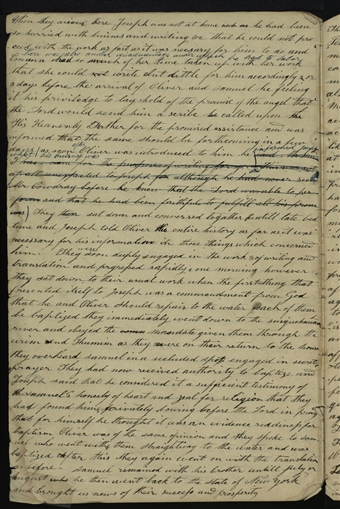 When they arrived here Joseph was not at home and as he had been
so hurried with business and writing &c that he could not pro
ceed with the work as fast as it was necessary for him to do and
there was also another disadvantage under which he had to labor
Emma had so much of her time taken up with her work
that she could not write but little for him accordingly 2 or
3 days before the arrival of Oliver and Samuel he feeling
it his priviledge to lay hold of the promise of the angel that
the Lord would send him a scribe he called upon the
this Heavenly Father for the promised assistance and was
informed that the same should be forthcoming in a few
days as soon as Oliver was introduced to him he
upon his making
apostle unexpected to Joseph for although he had never
Cowdray before he knew that the Lord was able to per
form and that he had been faithful to fulfill all his prom
ises They then sat down and conversed together untill late bed
time and Joseph told Oliver the entire history as far as it was
necessary for his information in those things which concerned
him. They soon deeply engaged in the work of writing and
translation and progressed rapidly one morning however
they sat down to their usual work when the first thing that
presented itself to Joseph was a commandment from God
that he and Oliver should repair to the water each of them
be baptized they immediately went down to the susquehanna
river and obeyed the mandate given them through the
urim and Thumim as they were on their return to the house
they overheard samuel in a secluded spot engaged in secret
prayer They had now received authority to baptize and
Joseph said that he considered it a sufficient testimony of
samuel's honesty of heart and zeal for religion that they
had found him privately bowing before the Lord in prayer
that for himself he thought it was an evidence readiness for
baptism Oliver was of the same opinion and they spoke to sam
uel who went with them straightway to the water and was
baptized after this they again went on with the translation
as before— samuel remained with his brother untill july or
august when he then went back to the state of New York
and brought us news of their success and prosperity